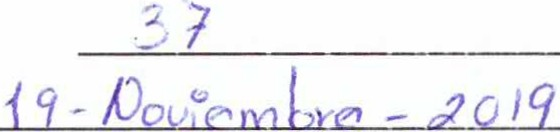 37
19-Noviembre-2019